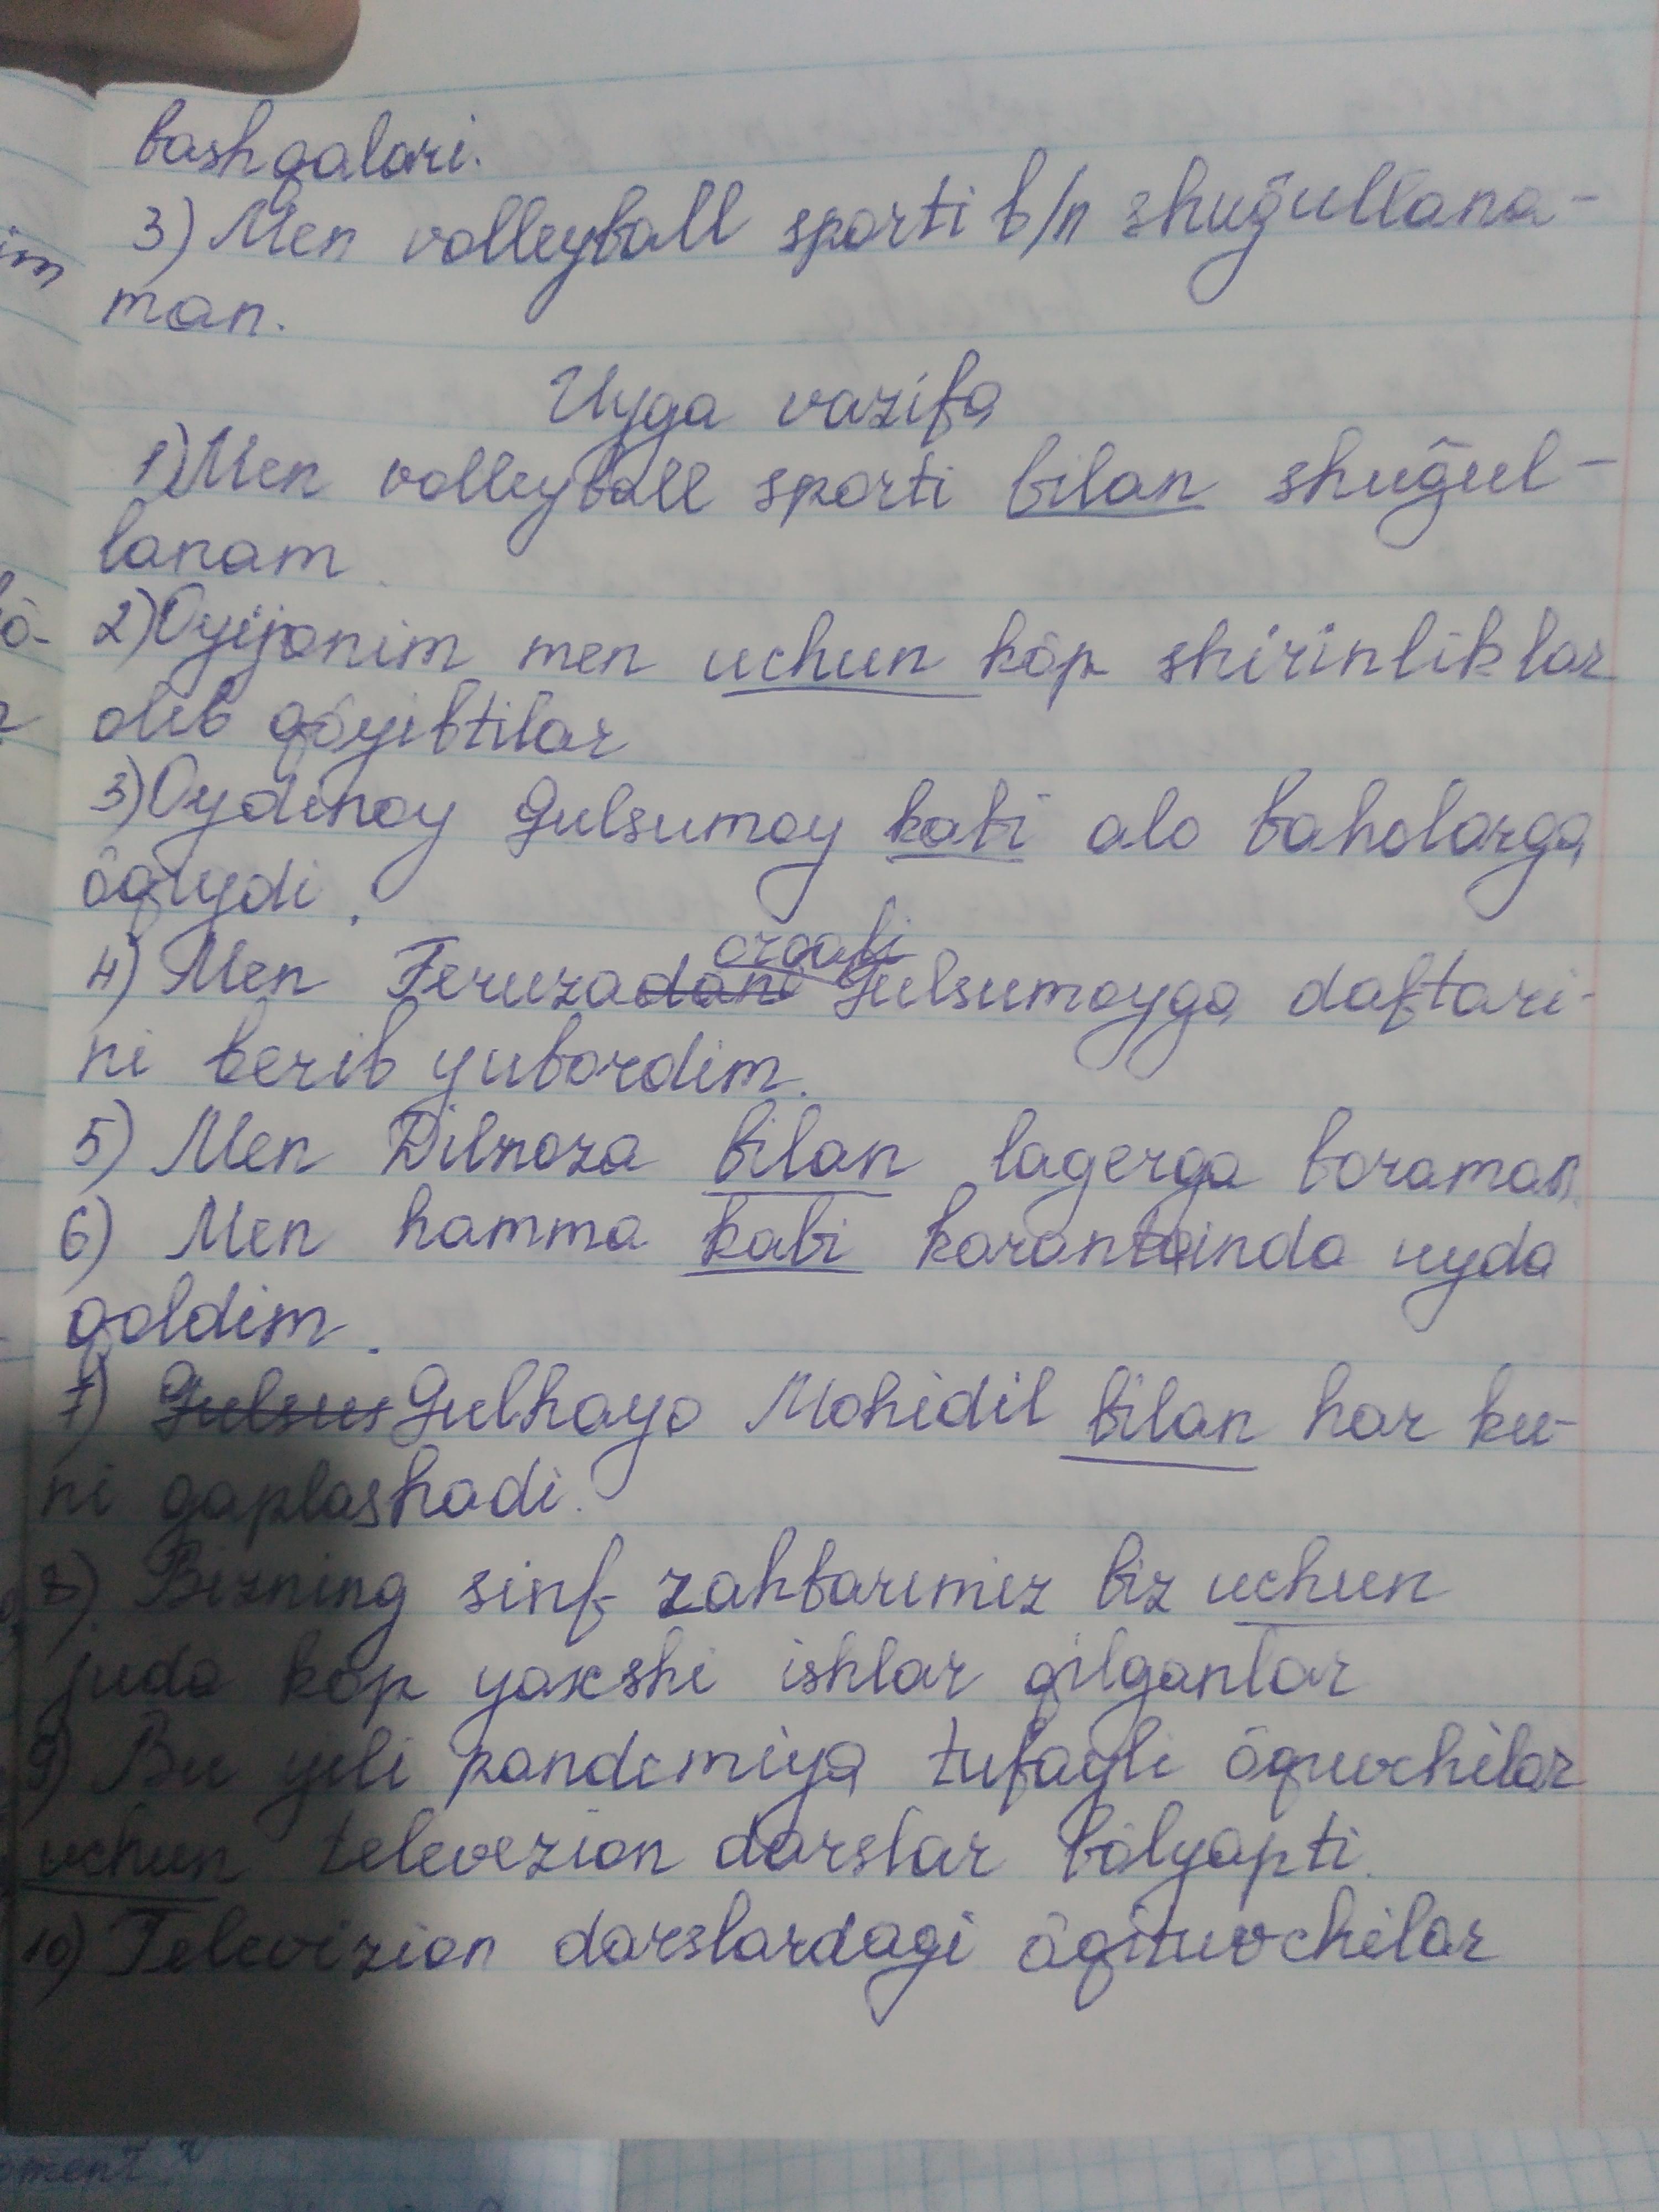 bashqalari.
3) Men volleyball sporti b/n shuğullana-
man.
Uyga vazifa
1) Men volleyball sporti bilan shuğul-
lanam
2) Oyijonim men uchun kōp shirinliklar
olib qōyibtilar
3) Oydinoy Gulsumoy kabi alo baholarga
ōqiydi.
orqali
4) Men Feruza Gulsumoyga daftari-
ni berib yubordim.
5) Men Dilnoza bilan lagerga boraman.
6) Men hamma kabi karantainda uyda
qoldim.
7) Gulhayo Mohidil bilan har ku-
ni gaplashadi.
8) Bizning sinf rahbarimiz biz uchun
juda kōp yaxshi ishlar qilganlar
9) Bu yili pandemiya tufayli ōquvchilar
uchun televezion darslar bōlyapti.
10) Televizion darslardagi ōqituvchilar